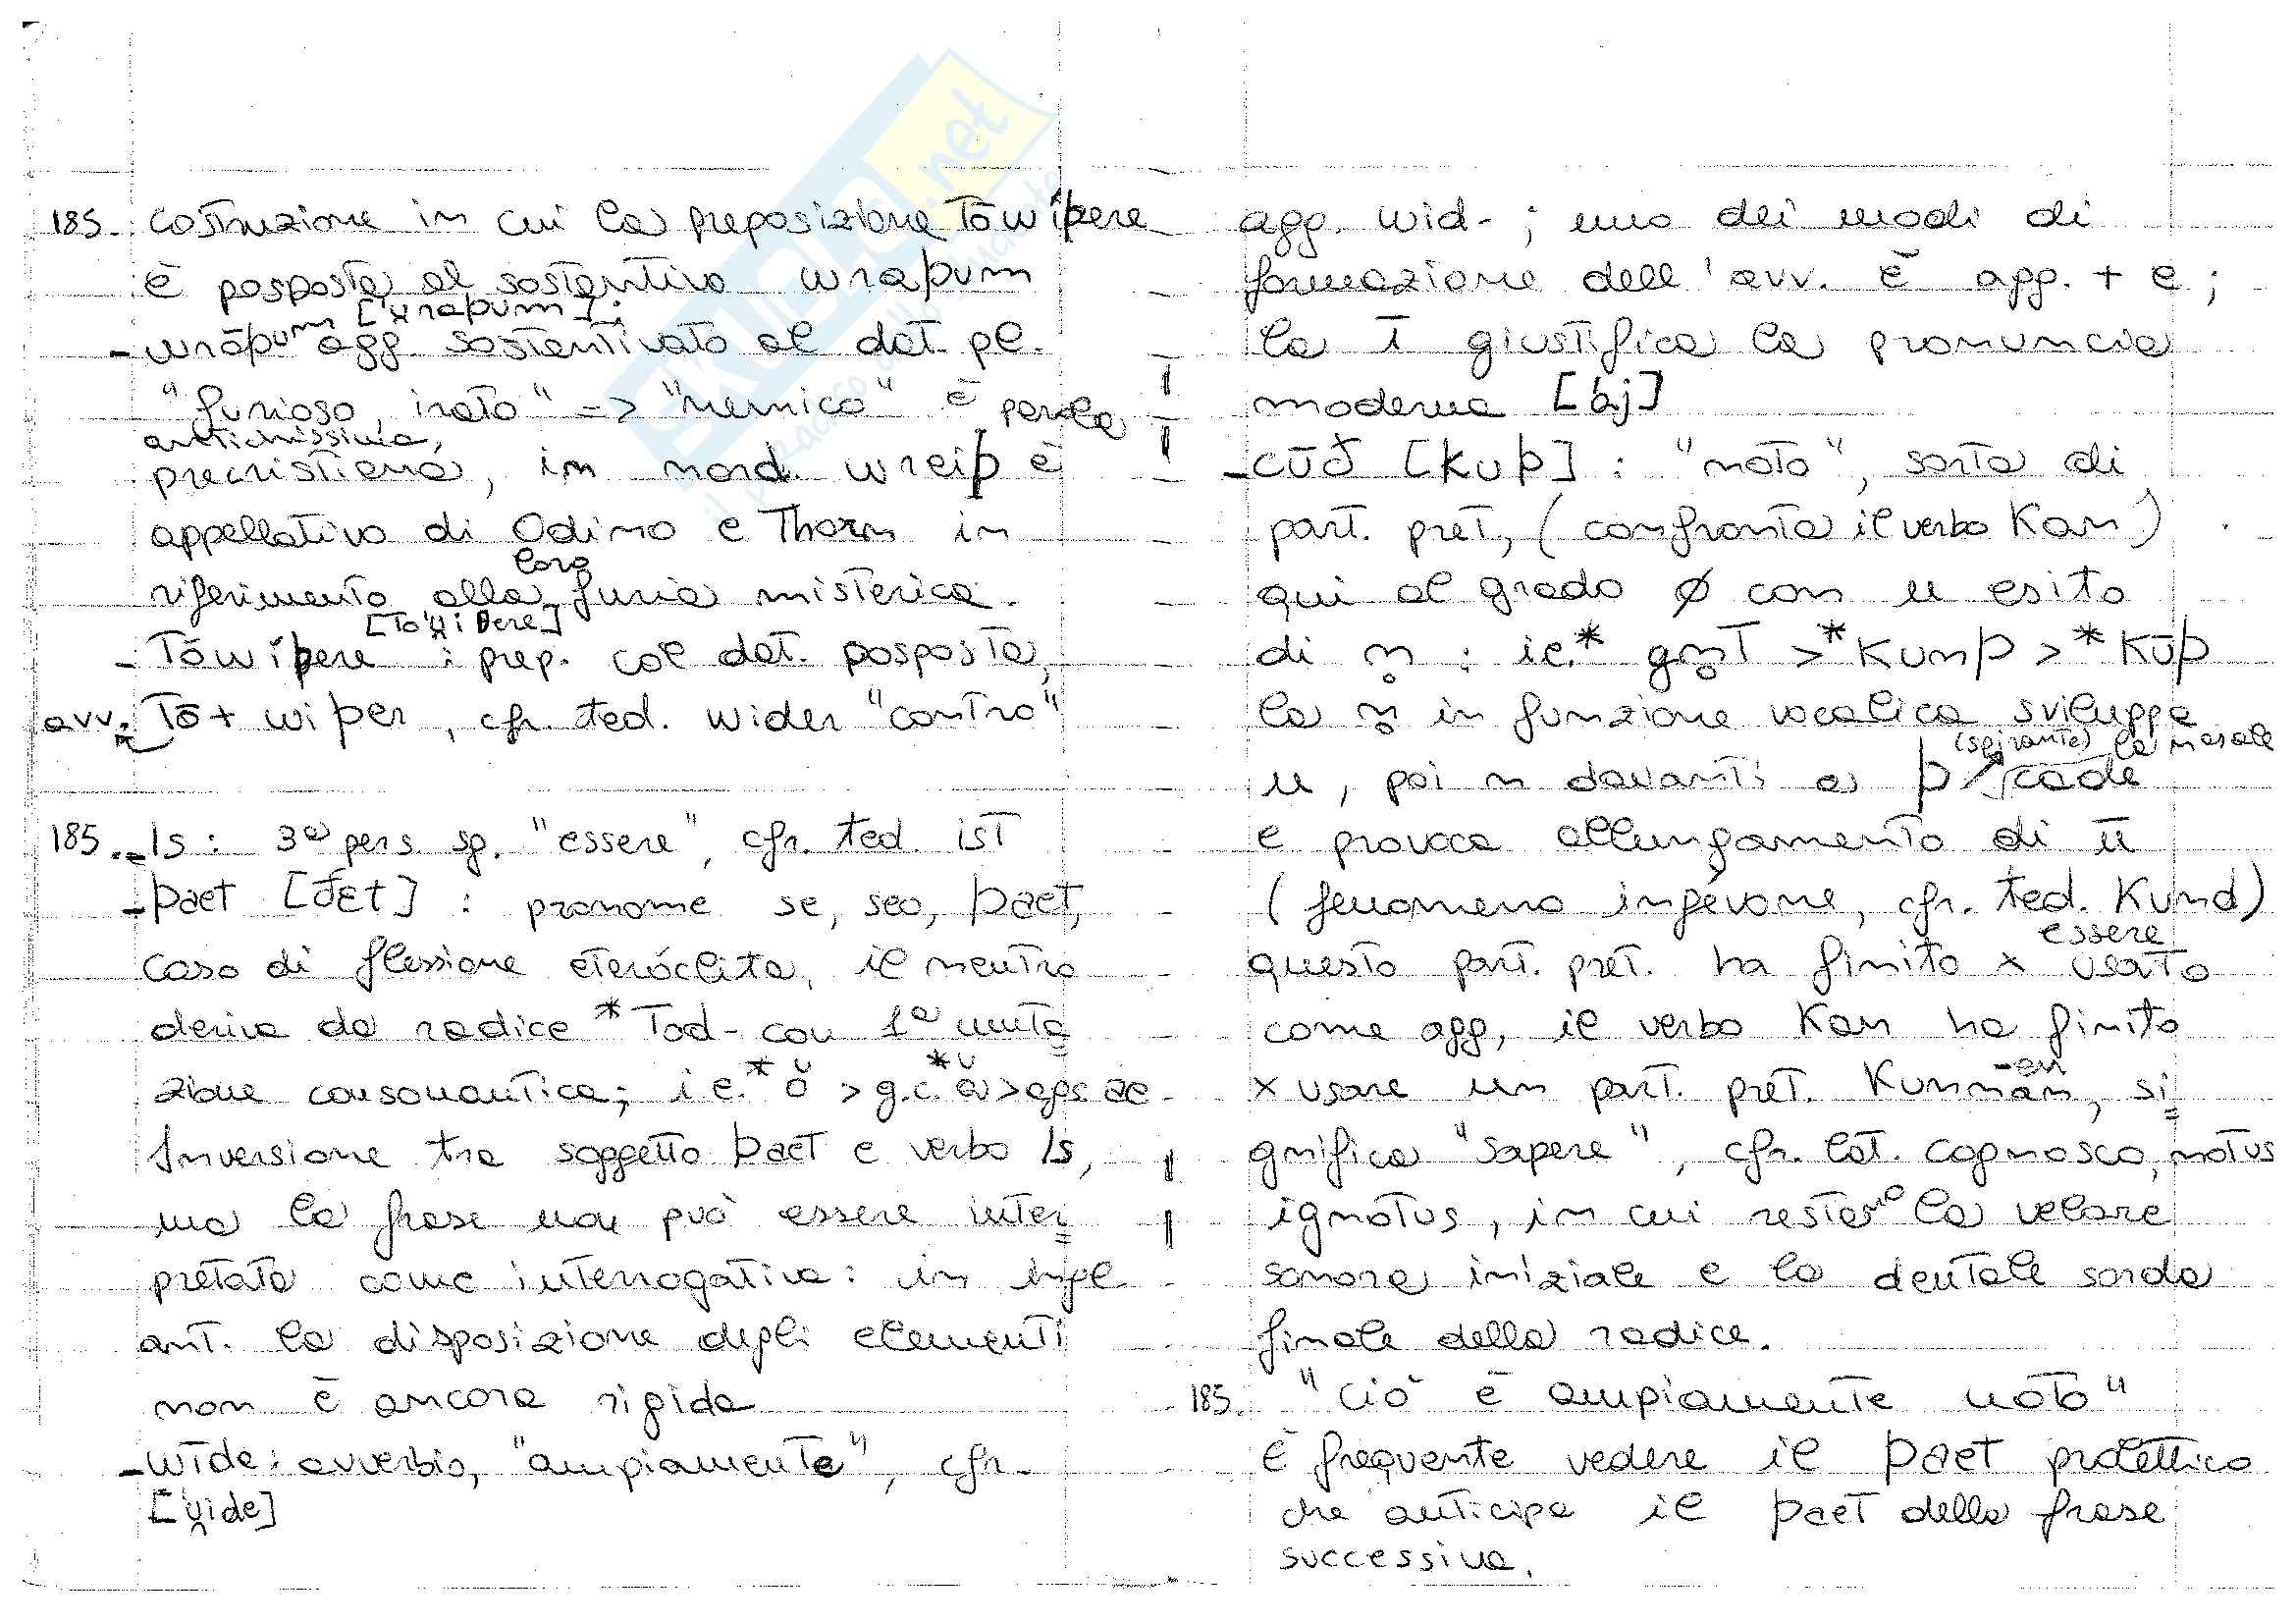 185. costruzione in cui la preposizione tōwiþere
è posposta al sostantivo wraþum
[u̯raþum];
- wrāþum agg. sostantivato al dat. pl.
"furioso, irato" -> "nemico" è parola
antichissima,
precristiana, in nord. wreiþ è
appellativo di Odino e Thorn in
riferimento alla loro furia misterica.
[to'u̯iþere]
- Tōwiþere : prep. col dat. posposta,
avv. Tō + wiþer, cfr. ted. wider "contro"
185. - Is: 3ª pers. sg. "essere", cfr. ted. ist
- þaet [đɛt] : pronome se, seo, þaet,
caso di flessione eteròclita, il neutro
deriva da radice *Tod- con 1ª muta=
zione consonantica; i.e. *ŏ > g.c. *ă > ags. ae
Inversione tra soggetto þaet e verbo Is,
ma la frase non può essere inter=
pretata come interrogativa: in ingl.
ant. la disposizione degli elementi
non è ancora rigida
- wīde: avverbio, "ampiamente", cfr.
[u̯ide]
agg. wid- ; uno dei modi di
formazione dell'avv. è agg. + e ;
la ī giustifica la pronuncia
moderna [aj]
- cūđ [kuþ] : "noto", sorta di
part. pret, (confronta il verbo Kan)
qui al grado ø con u esito
di n̥ : ie. * gn̥t > *Kunþ > *Kūþ
la n̥ in funzione vocalica sviluppa
u, poi n davanti a þ (spirante) cade la nasale
e provoca allungamento di ū
(fenomeno ingévone, cfr. ted. Kund)
questo part. pret. ha finito x essere usato
come agg, il verbo Kan ha finito
x usare un part. pret. Kunnan -en, si=
gnifica "sapere", cfr. lat. cognosco, notus
ignotus, in cui restano la velare
sonora iniziale e la dentale sorda
finale della radice.
185. "Ciò è ampiamente noto"
È frequente vedere il þaet prolettico
che anticipa il þaet della frase
successiva.